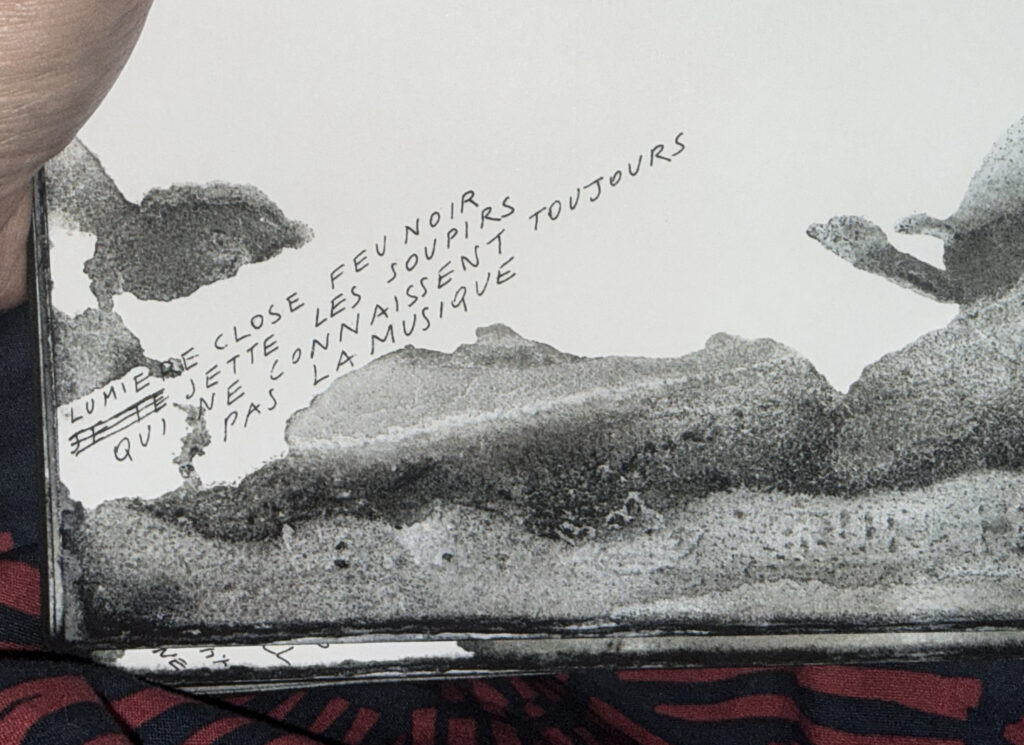 LUMIERE CLOSE FEU NOIR
JETTE LES SOUPIRS
QUI NE CONNAISSENT TOUJOURS
PAS LA MUSIQUE